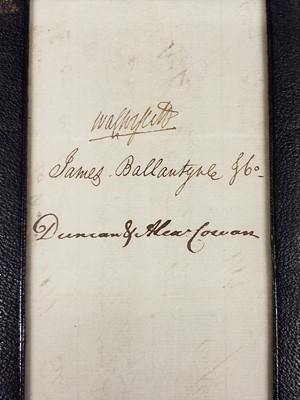 Walter Scott
James Ballantyne & Co.
Duncan & Alexr Cowan